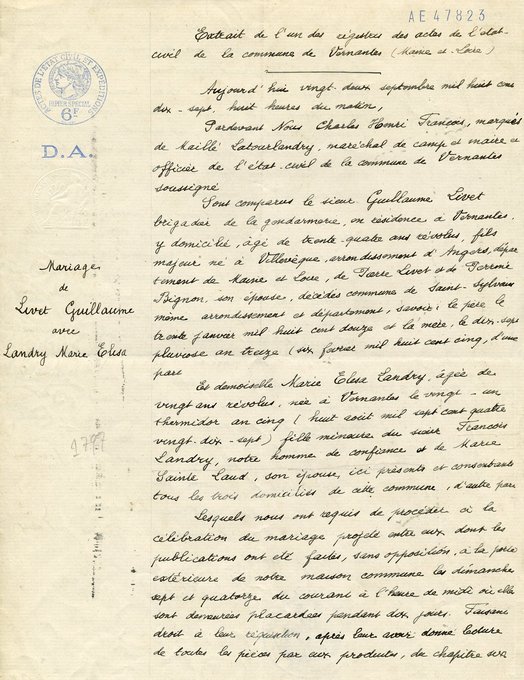 AE47823
Extrait de l'un des registres des actes de l'état-
civil de la commune de Vernantes (Maine et Loire)
ACTES DE L'ÉTAT CIVIL ET EXPÉDITIONS
PAPIER SPÉCIAL
6F
D.A.
Mariage
de
Livet Guillaume
avec
Landry Marie Elisa
1797
Aujourd'hui vingt-deux septembre mil huit cent
dix-sept, huit heures du matin,
Pardevant Nous Charles Henri François, marquis
de Maillé Latourlandry, maréchal de camp et maire et
officier de l'état-civil de la commune de Vernantes
soussigné
Sont comparus le sieur Guillaume Livet
brigadier de la gendarmerie, en résidence à Vernantes
y domicilié, âgé de trente-quatre ans révolus, fils
majeur né à Villevêque, arrondissement d'Angers, dépar
tement de Maine et Loire, de Pierre Livet et de Perrine
Bignon, son épouse, décédés commune de Saint-Sylvain
même arrondissement et département, savoir: le père le
trente janvier mil huit cent douze et la mère, le dix-sept
pluviose an treize (six février mil huit cent cinq, d'une
part
Et demoiselle Marie Elisa Landry, âgée de
vingt ans révolus, née à Vernantes le vingt-un
thermidor an cinq (huit août mil sept cent quatre
vingt-dix-sept) fille mineure du sieur François
Landry, notre homme de confiance et de Marie
Sainte Laud, son épouse, ici présents et consentants
tous les trois domiciliés de cette commune, d'autre part
Lesquels nous ont requis de procéder à la
célébration du mariage projeté entre eux dont les
publications ont été faites, sans opposition, à la porte
extérieure de notre maison commune les dimanche
sept et quatorze du courant à l'heure de midi où elles
sont demeurées placardées pendant dix jours. Faisant
droit à leur réquisition, après leur avoir donné lecture
de toutes les pièces par eux produites, du chapitre six